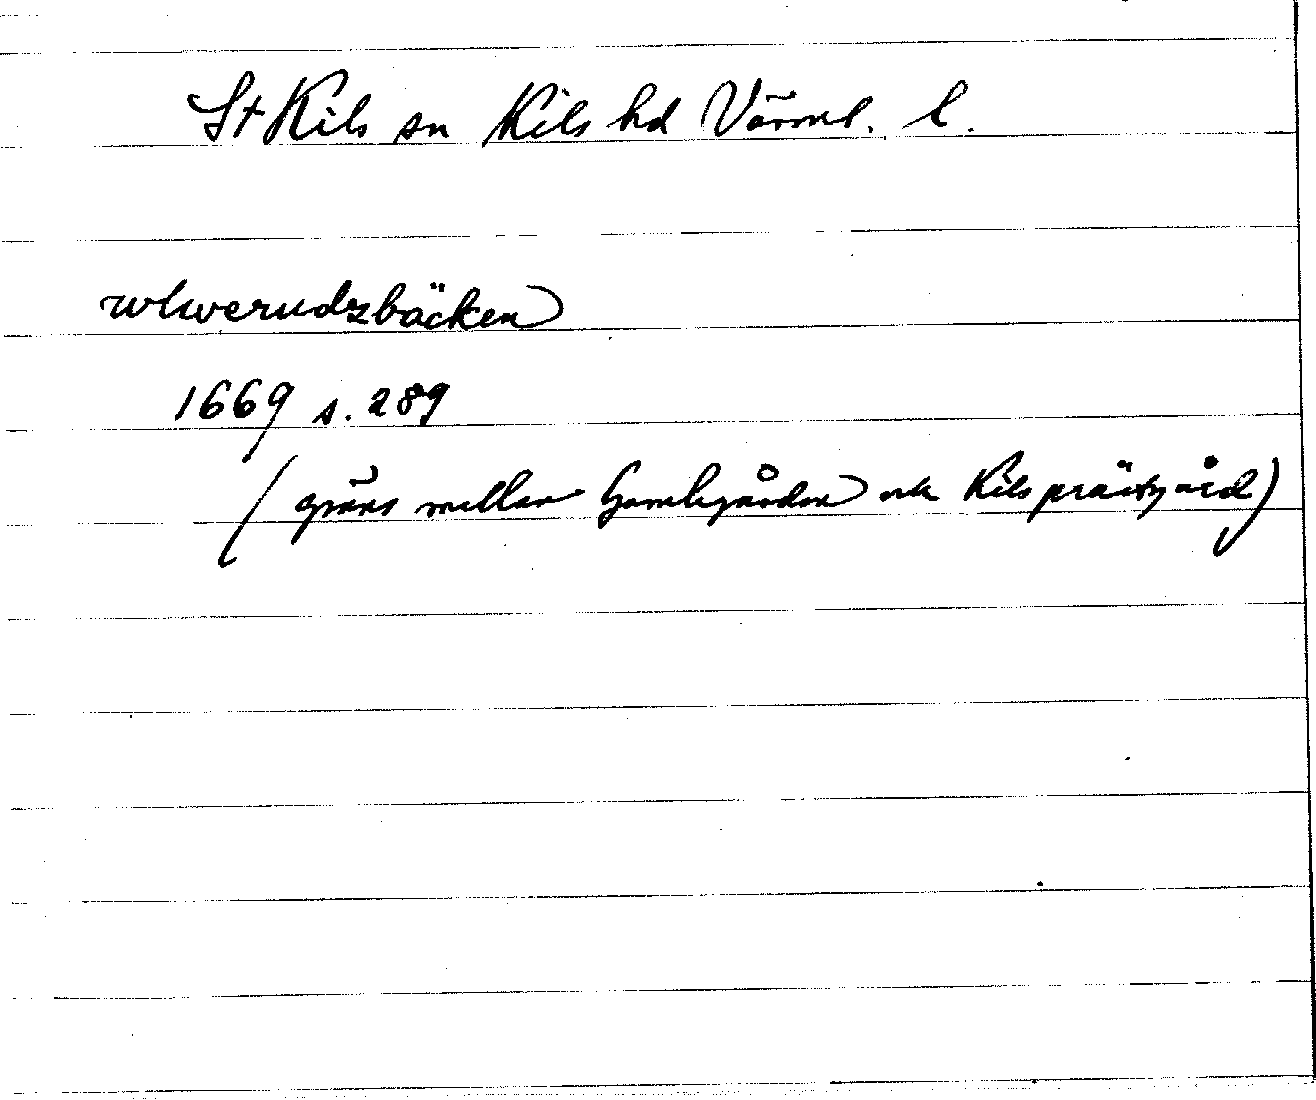 St Kils sn Kils hd Värml. l.
wlwerudzbäcken
1669 s. 289
(gräns mellan Hambgården och Kils prästgård)